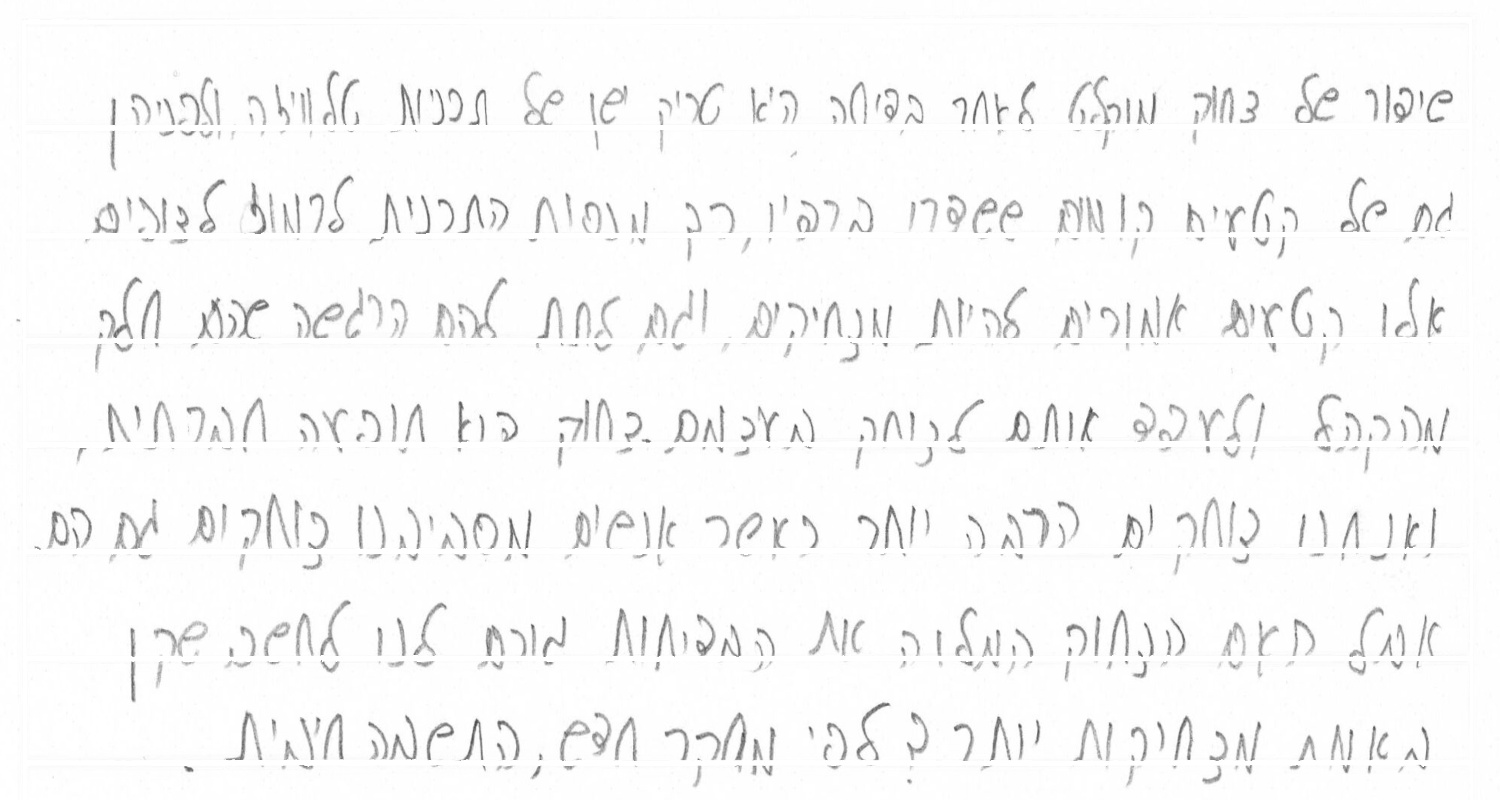 שיפור של צחוק מוקלט לאחר בפיחה היא טריק ישן של תכנית טלוויזיה ולפניהן
גם של קטעים קומים ששפרו ברפיו, רק מנסות התכנית לרמוז לצופים
אלו קטעים אמורים להיות מצחיקים, וגם לתת להם הרגשה שהם חלק
מהקהל ולעבפ אותם לצחק בעצמם. צחוק הוא תופעה חברתית,
ואנחנו צוחקים הרבה יותר כאשר אנשים מסביבנו צוחקים גם הם.
אבל האם הצחוק המלוה את הבפיחות גורם לנו לחשב שהן
באמת מצחיקות יותר? לפי מחקר חדש, התשובה חיובית.